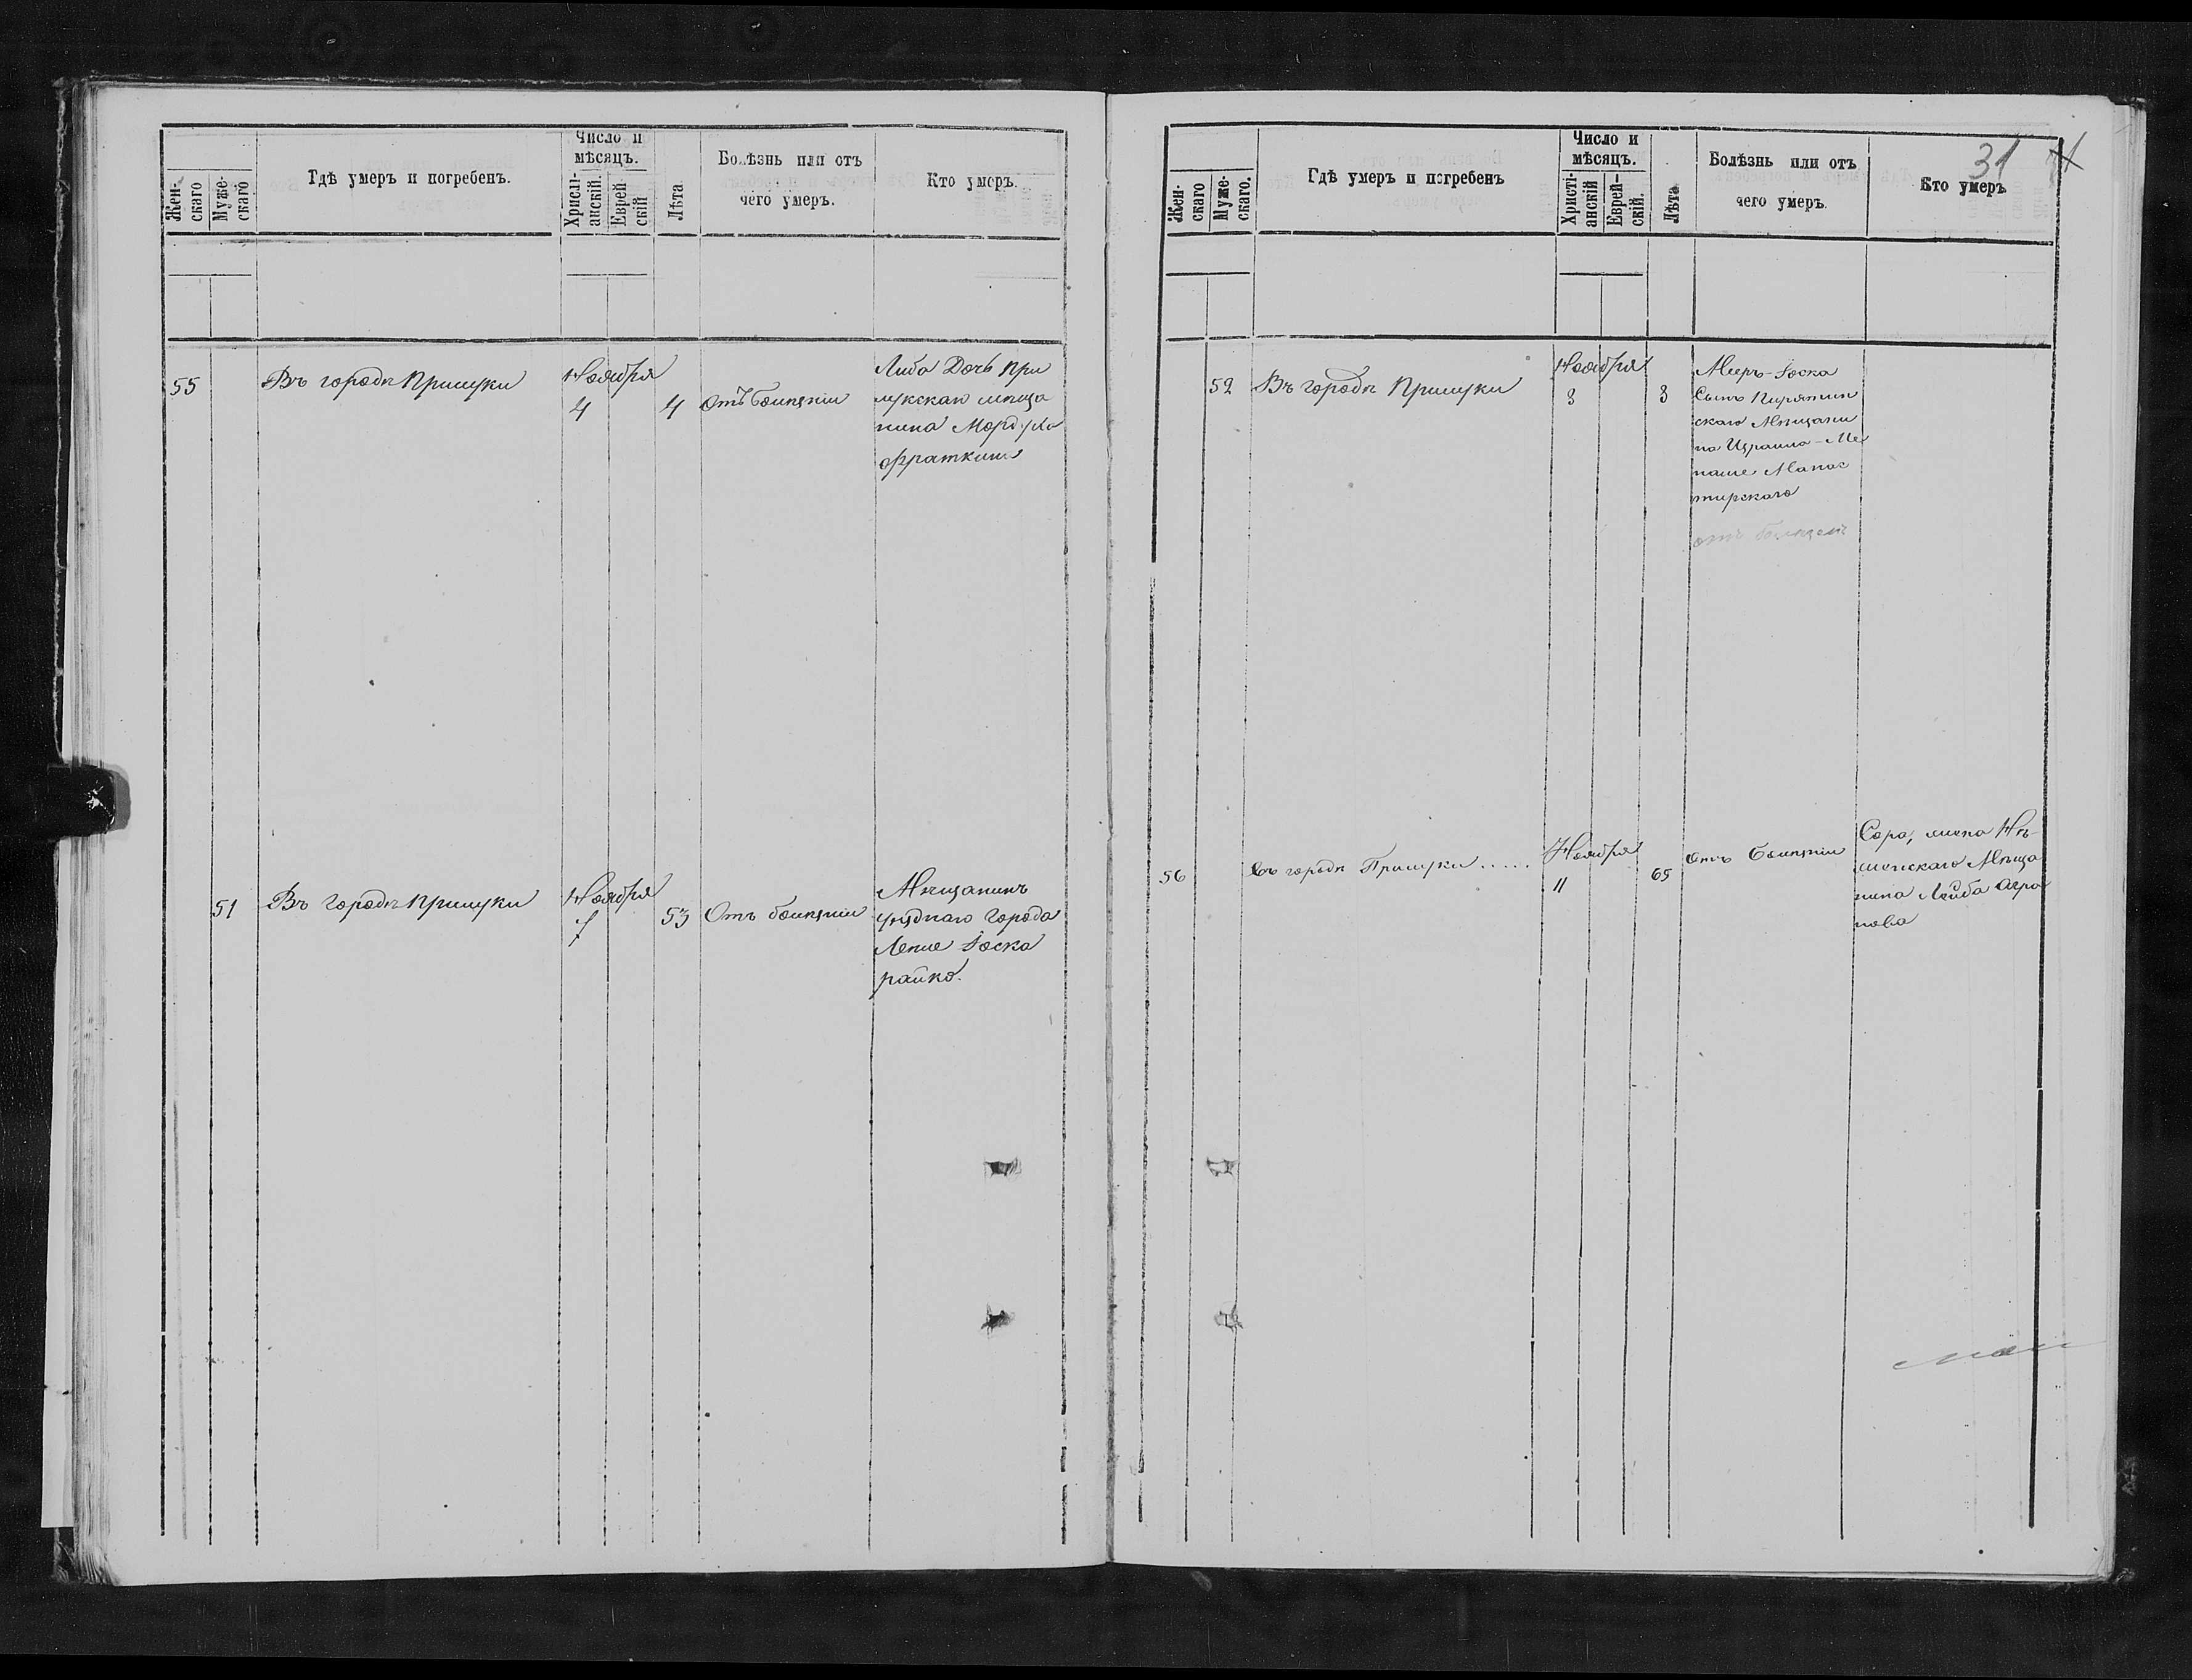 Жен-
скаго
Муже-
скаго
Гдѣ умеръ и погребенъ.
Число и
мѣсяцъ.
Христі-
анскій.
Еврей
скій
Лѣта
Болѣзнь или отъ
чего умеръ.
Кто умеръ.
55
Въ городѣ Прилуки
Ноября
4
4
Отъ болѣзни
Либа Дочь При
лукскаго мѣща
нина Мордуха
Фраткина
51
Въ городѣ Прилуки
Ноября
7
53
Отъ болѣзни
Мѣщанинъ
уѣзднаго города
Іоска
райко.
31
Жен-
скаго
Муже-
скаго.
Гдѣ умеръ и погребенъ
Число и
мѣсяцъ.
Христі-
анскій
Еврей-
скій.
Лѣта
Болѣзнь или отъ
чего умеръ.
Кто умеръ
52
Въ городѣ Прилуки
Ноября
3
3
Мееръ-Іоска
Сынъ Пирятин
скаго Мѣщани
на Израиля-Ме
наше Манас
тирскаго
отъ болѣзни
56
Въ городѣ Прилуки.....
Ноября
11
65
Отъ болѣзни
Сора, жена Нѣ-
жинскаго Мѣща
нина Лейба Агра
нова